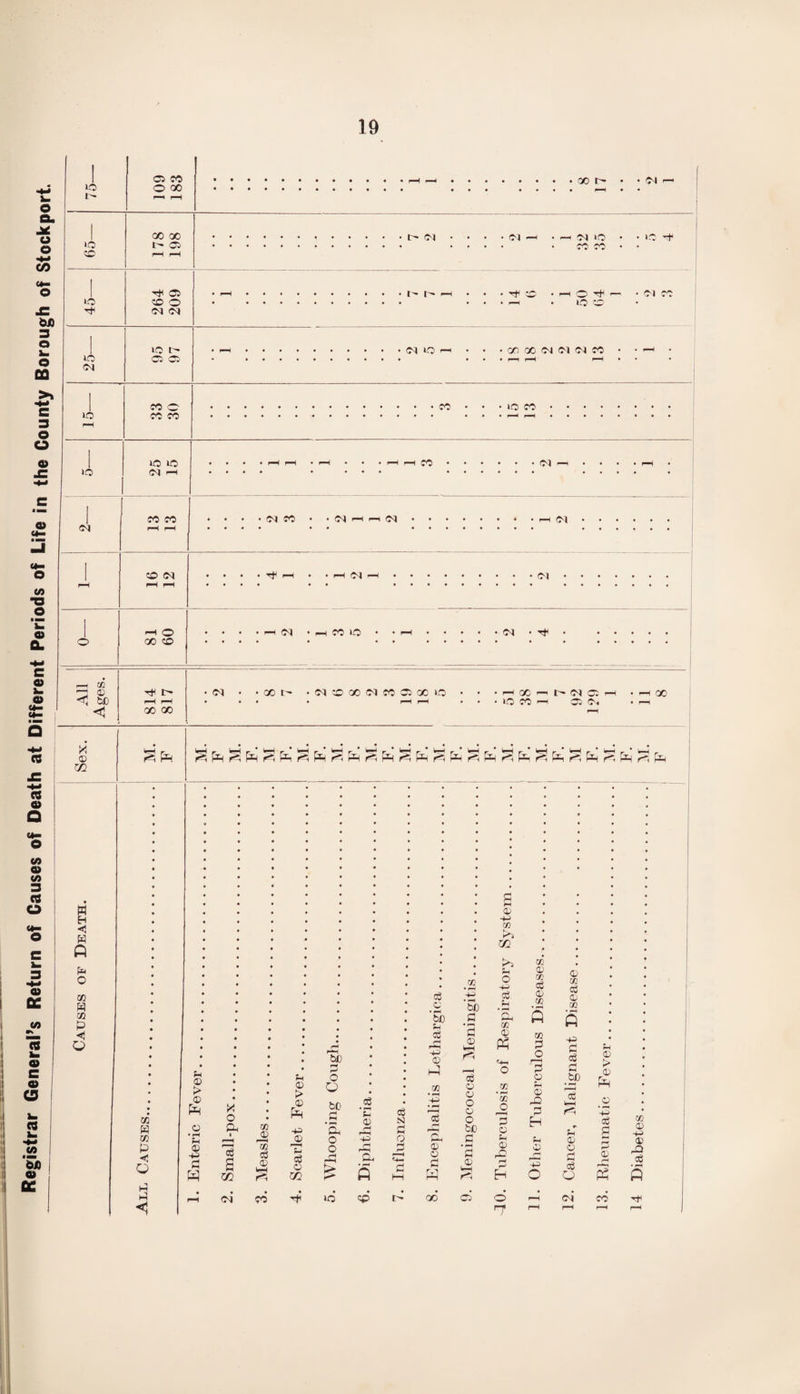 19
Registrar General's Return of Causes of Death at Different Periods of Life in the County Borough of Stockport.
CAUSES OF DEATH. Sex. All Ages. 0— 1— 2— 5— 15— 25— 45— 65— 75—
ALL CAUSES M. 814 81 16 13 25 33 95 264 178 109
F 817 60 12 13 15 30 97 209 198 183
1. Enteric Fever M. .. .. .. .. .. .. .. .. .. ..
F. 2 .. .. .. .. .. 1 1 .. ..
2. Small-pox M. .. .. .. .. .. .. .. .. .. ..
F. .. .. .. .. .. .. .. .. .. ..
3. Measles M. 8 1 4 2 1 .. .. .. .. ..
F. 7 2 1 3 1 .. .. .. .. ..
4. Scarlet Fever M. .. .. .. .. .. .. .. .. .. ..
F. 2 1 .. .. 1 .. .. .. .. ..
5. Whooping Cough M. 6 3 1 2 .. .. .. .. .. ..
F. 8 5 2 1 .. .. .. .. .. ..
6. Diphtheria M. 2 .. 1 1 .. .. .. .. .. ..
F. 3 .. .. 2 1 .. .. .. .. ..
7. Influenza M. 19 1 .. .. 1 .. 2 7 7 1
F. 18 .. .. .. 3 .. 5 7 2 1
8. Encephalitis Lethargica M. 5 .. .. .. .. 3 1 1 .. ..
F. .. .. .. .. .. .. .. .. .. ..
9. Meningococcal Meningitis M. .. .. .. .. .. .. .. .. .. ..
F. .. .. .. .. .. .. .. .. .. ..
10. Tuberculosis of Respiratory System M. 51 2 .. .. .. 15 18 14 2 ..
F. 38 .. .. .. .. 13 18 6 1 ..
11. Other Tuberculous Diseases M. 11 4 2 1 2 .. 2 .. .. ..
F. 7 .. .. 2 1 .. 2 1 1 ..
12. Cancer, Malignant Disease M. 92 .. .. .. .. .. 2 50 32 8
F. 129 .. .. .. .. .. 13 64 35 17
13. Rheumatic Fever M. 1 .. .. .. .. .. .. 1 .. ..
F. .. .. .. .. .. .. .. .. .. ..
14 Diabetes M. 11 .. .. .. 1 .. 1 2 5 2
F 8 .. .. .. .. .. .. 3 4 1